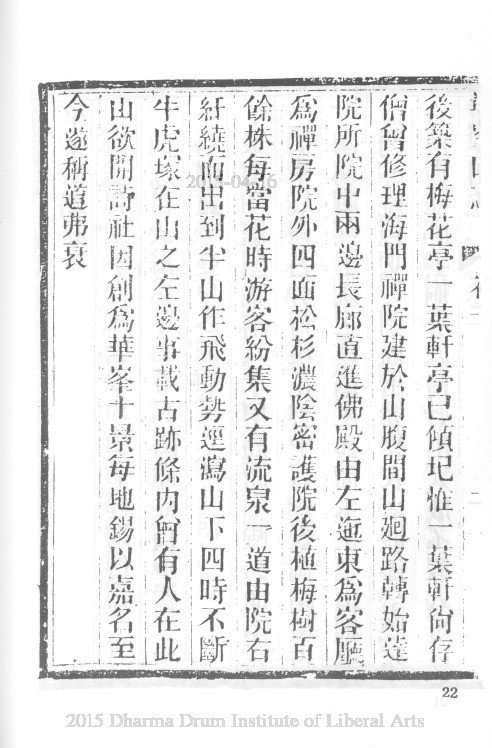 後築有梅花亭一葉軒亭已傾圮惟一葉軒尙存
僧曾修理海門禪院建於山腹間山廻路轉始達
院所院中兩邊長廊直進佛殿由左迤東爲客廳
爲禪房院外四面松杉濃陰密護院後植梅樹百
餘株每當花時游客紛集又有流泉一道由院右
紆繞而出到半山作飛動勢逕瀉山下四時不斷
牛虎塚在山之左邊事載古跡條內曾有人在此
山欲開詩社因創爲華峯十景每地錫以嘉名至
今遂稱道弗衰
22
2015 Dharma Drum Institute of Liberal Arts